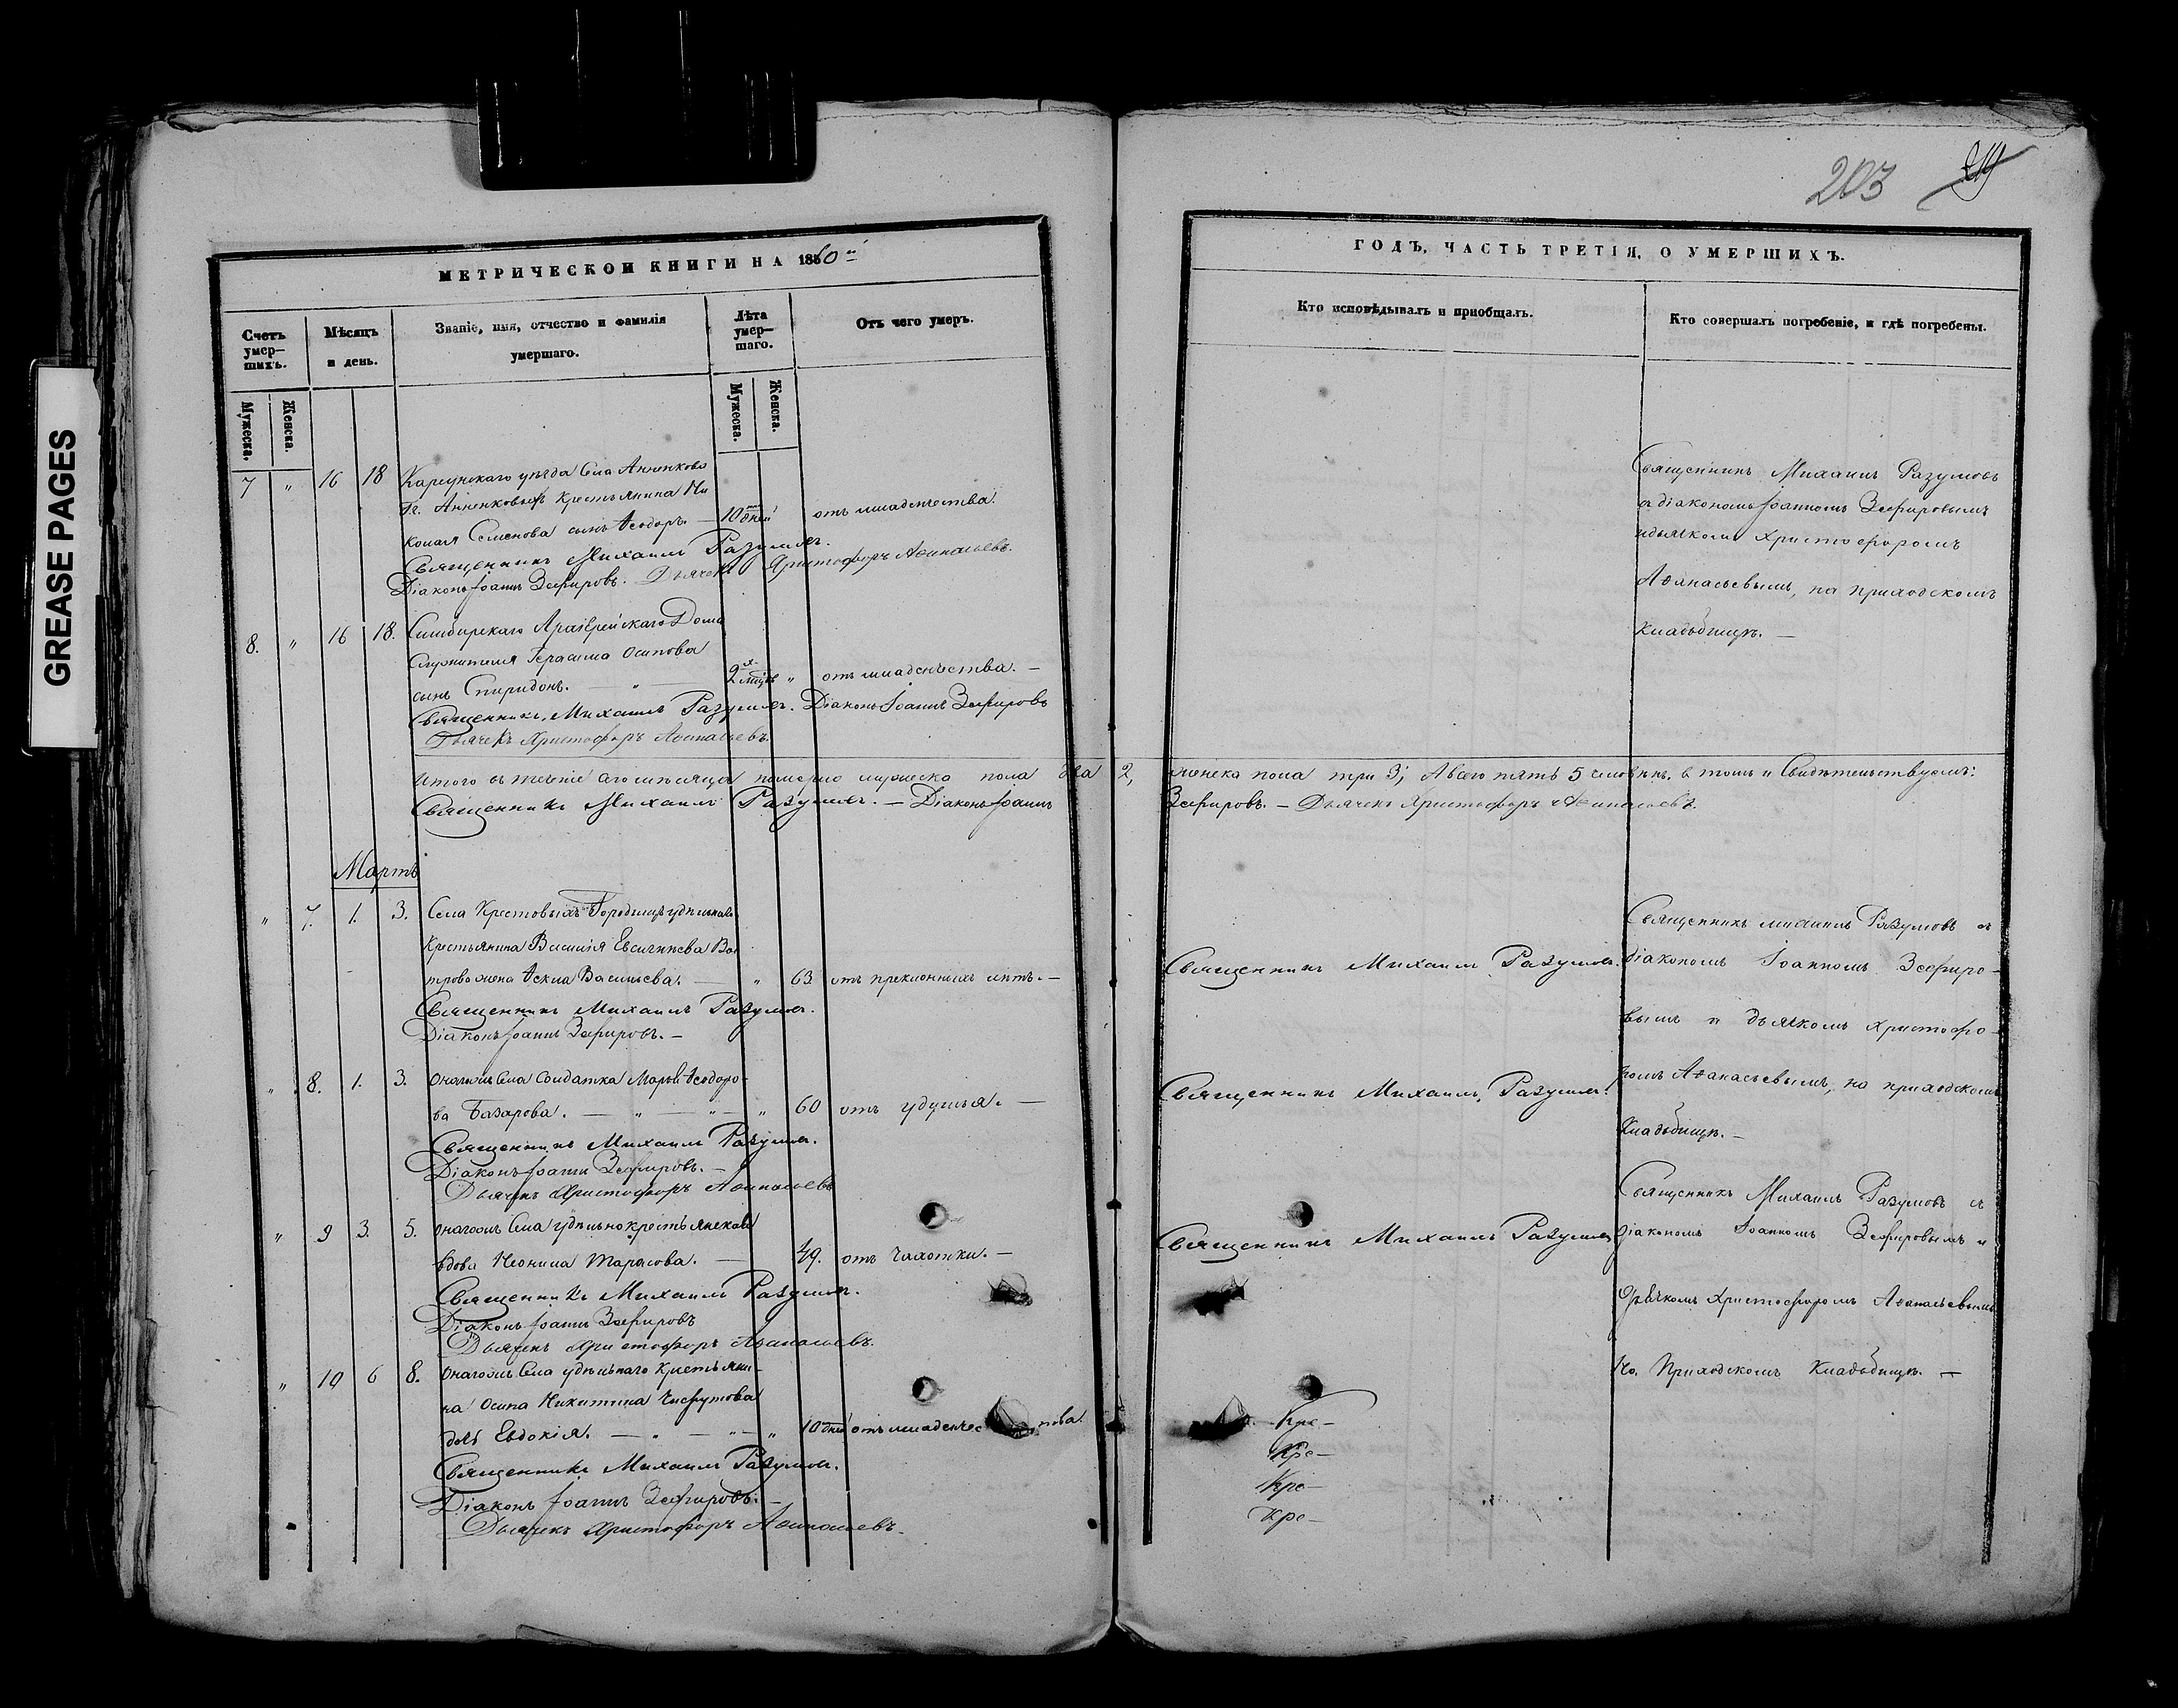 GREASE PAGES
203
219
МЕТРИЧЕСКОЙ КНИГИ НА 1860й
Счетъ умер-шихъ.
Мѣсяцъ и день.
Званіе, имя, отчество и фамилія умершаго.
Лѣта умер-шаго.
Отъ чего умеръ.
Мужеска.
Женска.
Мужеска.
Женска.
7 " 16 18 Карсунскаго уѣзда Села Анненкова
Гг. Анненковыхъ крестьянина Ни
колая Семенова сынъ Ѳеодоръ. — 10 дней отъ младенчества.
Священникъ Михаилъ Разумовъ.
Діаконъ Іоаннъ Зефировъ. Дьячекъ Христофоръ Аѳанасьевъ.
8. " 16 18. Симбирскаго Архіерейскаго Дома
Служителя Герасима Осипова
сынъ Спиридонъ. — " — 2 мѣся " отъ младенчества. —
Священникъ Михаилъ Разумовъ. Діаконъ Іоаннъ Зефировъ
Дьячекъ Христофоръ Аѳанасьевъ.
Итого въ теченіе сего мѣсяца померло мужеска пола два 2,
Священникъ Михаилъ Разумовъ. — Діаконъ Іоаннъ
Мартъ
" 7. 1. 3. Села Крестовыхъ Городищъ удѣльнаго
Крестьянина Василія Евсигнѣева
жена Ѳекла Васильева. — " 63 отъ преклонныхъ лѣтъ. —
Священникъ Михаилъ Разумовъ.
Діаконъ Іоаннъ Зефировъ. —
" 8. 1. 3. Онагожъ Села Солдатка Марья Ѳеодоро-
ва Базарова. — " — " — " 60 отъ удушья. —
Священникъ Михаилъ Разумовъ.
Діаконъ Іоаннъ Зефировъ. —
Дьячекъ Христофоръ Аѳанасьевъ
" 9 3. 5. Онагожъ Села удѣльнокрестьянская
вдова Неонила Тарасова. — 49. отъ чахотки. —
Священникъ Михаилъ Разумовъ.
Діаконъ Іоаннъ Зефировъ
Дьячекъ Христофоръ Аѳанасьевъ.
" 10 6 8. Онагожъ Села удѣльнаго крестьяни-
на Осипа Никитина
дочь Евдокія. — " — " — " 10 дней отъ младенчества.
Священникъ Михаилъ Разумовъ.
Діаконъ Іоаннъ Зефировъ. —
Дьячекъ Христофоръ Аѳанасьевъ.
ГОДЪ, ЧАСТЬ ТРЕТІЯ, О УМЕРШИХЪ.
Кто исповѣдывалъ и пріобщалъ.
Кто совершалъ погребеніе, и гдѣ погребены.
Священникъ Михаилъ Разумовъ
съ діакономъ Іоанномъ Зефировымъ
и дьячкомъ Христофоромъ
Аѳанасьевымъ, на приходскомъ
кладбищѣ. —
женска пола три 3; А всего пять 5 человѣкъ. въ томъ и Свидѣтельствуемъ:
Зефировъ. — Дьячекъ Христофоръ Аѳанасьевъ.
Священникъ Михаилъ Разумовъ съ
Священникъ Михаилъ Разумовъ. діакономъ Іоанномъ Зефиро-
вымъ и дьячкомъ Христофо-
Священникъ Михаилъ Разумовъ. ромъ Аѳанасьевымъ, на приходскомъ
Кладбищѣ. —
Священникъ Михаилъ Разумовъ съ
Священникъ Михаилъ Разумовъ діакономъ Іоанномъ Зефировымъ и
дьячкомъ Христофоромъ Аѳанасьевымъ
На Приходскомъ Кладбищѣ. —
Кре-
Кре-
Кре-
Кре-